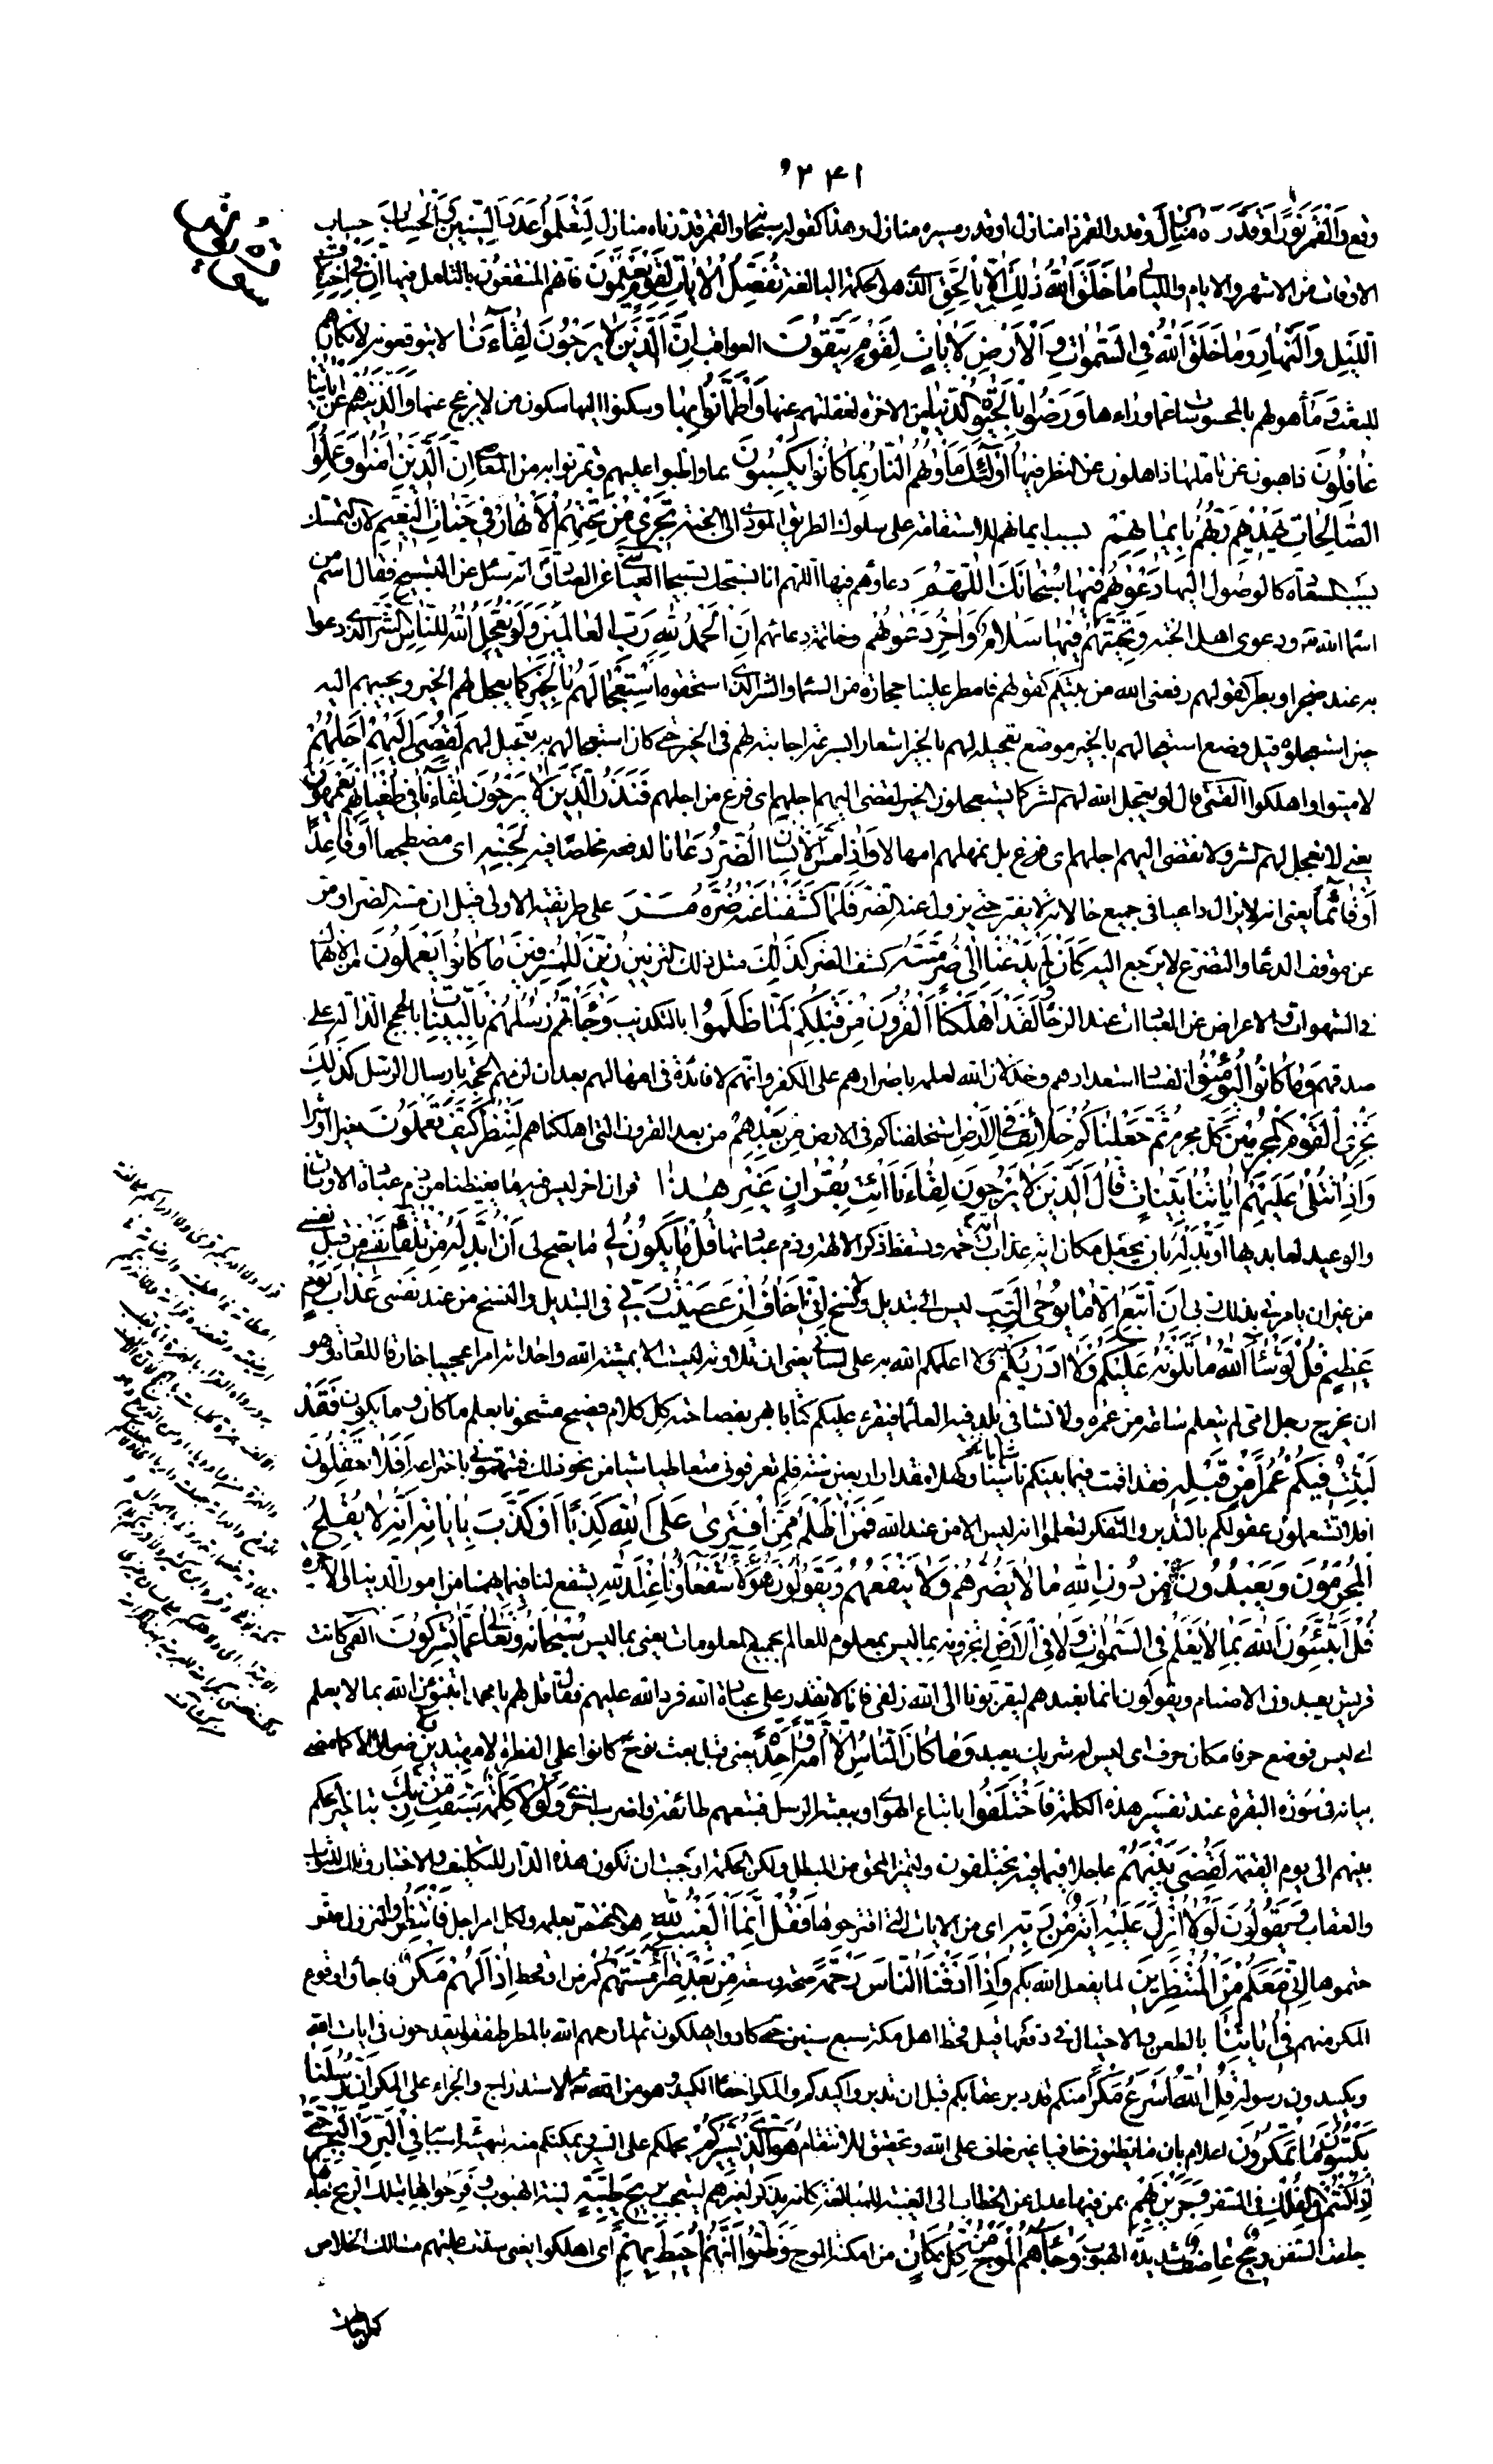 ۲۴۱
سورة يونس
وقع وَالْقَمَرَ نُورًا وَقَدَّرَهُ مَنَازِلَ وقدر القمر ذا منازل او قدر مسيره منازل وهذا كقوله سبحانه والقمر قدرناه منازل لِتَعْلَمُوا عَدَدَ السِّنِينَ وَالْحِسَابَ حساب
الاوقات من الاشهر والايام والليالى مَا خَلَقَ اللَّهُ ذَلِكَ إِلَّا بِالْحَقِّ الذى هو الحكمة البالغة نُفَصِّلُ الْآيَاتِ لِقَوْمٍ يَعْلَمُونَ فانهم المنتفعون بالتامل فيها إِنَّ فِي اخْتِلَافِ
اللَّيْلِ وَالنَّهَارِ وَمَا خَلَقَ اللَّهُ فِي السَّمَوَاتِ وَالْأَرْضِ لَآيَاتٍ لِقَوْمٍ يَتَّقُونَ العواقب إِنَّ الَّذِينَ لَا يَرْجُونَ لِقَاءَنَا لا يتوقعونه لانكارهم
للبعث وذهولهم بالمحسوسات عما وراءها وَرَضُوا بِالْحَيَوةِ الدُّنْيَا من الاخرة لغفلتهم عنها وَاطْمَأَنُّوا بِهَا وسكنوا اليها سكون من لا يزعج عنها وَالَّذِينَ هُمْ عَنْ آيَاتِنَا
غَافِلُونَ ذاهبون عن تاملها ذاهلون عن النظر فيها أُولَئِكَ مَأْوَيهُمُ النَّارُ بِمَا كَانُوا يَكْسِبُونَ بما واظبوا عليهم وتمرنوا به من المعاصى إِنَّ الَّذِينَ آمَنُوا وَعَمِلُوا
الصَّالِحَاتِ يَهْدِيهِمْ رَبُّهُمْ بِإِيمَانِهِمْ بسبب ايمانهم للاستقامة على سلوك الطريق المؤدى الى الجنة تَجْرِي مِنْ تَحْتِهِمُ الْأَنْهَارُ فِي جَنَّاتِ النَّعِيمِ لان التمسك
بسبب السعادة كالوصول اليها دَعْوَيهُمْ فِيهَا سُبْحَانَكَ اللَّهُمَّ دعاؤهم فيها اللهم انا نسبحك تسبيحا العياشى عن الصادق انه سئل عن التسبيح فقال اسم من
اسماء الله ودعوى اهل الجنة وَتَحِيَّتُهُمْ فِيهَا سَلَامٌ وَآخِرُ دَعْوَيهُمْ وخاتمة دعائهم أَنِ الْحَمْدُ لِلَّهِ رَبِّ الْعَالَمِينَ وَلَوْ يُعَجِّلُ اللَّهُ لِلنَّاسِ الشَّرَّ الذى دعوا
به عند ضجر او بطر كقولهم رفعنى الله من بينكم كقولهم فامطر علينا حجارة من السماء والشر الذى استحقوه اسْتِعْجَالَهُمْ بِالْخَيْرِ كما يعجل لهم الخير ويجيبهم اليه
حين استعجلوه قيل وضع استعجالهم بالخير موضع تعجيله لهم بالخير اشعارا بسرعة اجابته لهم فى الخير حتى كان استعجالهم به تعجيل لهم لَقُضِيَ إِلَيْهِمْ أَجَلُهُمْ
لاميتوا واهلكوا القمى قال لو يعجل الله لهم الشر كما يستعجلون الخير لقضى اليهم اجلهم اى فرغ من اجلهم فَنَذَرُ الَّذِينَ لَا يَرْجُونَ لِقَاءَنَا فِي طُغْيَانِهِمْ يَعْمَهُونَ
يعنى لا نعجل لهم الشر ولا نقضى اليهم اجلهم اى فرغ بل نمهلهم امهالا وَإِذَا مَسَّ الْإِنْسَانَ الضُّرُّ دَعَانَا لدفعه مخلصا فيه لِجَنْبِهِ اى مضطجعا أَوْ قَاعِدًا
أَوْ قَائِمًا يعنى انه لا يزال داعيا فى جميع حالاته لا يفتر حتى يزول عنه الضر فَلَمَّا كَشَفْنَا عَنْهُ ضُرَّهُ مَرَّ على طريقته الاولى قبل ان مسه الضر او مر
عن موقف الدعاء والتضرع لا يرجع اليه كَأَنْ لَمْ يَدْعُنَا إِلَى ضُرٍّ مَسَّهُ كشف الضر كَذَلِكَ مثل ذلك التزيين زُيِّنَ لِلْمُسْرِفِينَ مَا كَانُوا يَعْمَلُونَ من الانهماك
فى الشهوات والاعراض عن العبادات عند الرخاء وَلَقَدْ أَهْلَكْنَا الْقُرُونَ مِنْ قَبْلِكُمْ لَمَّا ظَلَمُوا بالتكذيب وَجَاءَتْهُمْ رُسُلُهُمْ بِالْبَيِّنَاتِ بالحجج الدالة على
صدقهم وَمَا كَانُوا لِيُؤْمِنُوا لفساد استعدادهم وخذلان الله لعلمه باصرارهم على الكفر وانهم لا فائدة فى امهالهم بعد ان لزمهم الحجة بارسال الرسل كَذَلِكَ
نَجْزِي الْقَوْمَ الْمُجْرِمِينَ كل مجرم ثُمَّ جَعَلْنَاكُمْ خَلَائِفَ فِي الْأَرْضِ استخلفناكم فى الارض مِنْ بَعْدِهِمْ من بعد القرون التى اهلكناهم لِنَنْظُرَ كَيْفَ تَعْمَلُونَ خيرا او شرا
وَإِذَا تُتْلَى عَلَيْهِمْ آيَاتُنَا بَيِّنَاتٍ قَالَ الَّذِينَ لَا يَرْجُونَ لِقَاءَنَا ائْتِ بِقُرْآنٍ غَيْرِ هَذَا قران اخر ليس فيه ما يغيظنا من ذم عبادة الاوثان
والوعيد لعابديها أَوْ بَدِّلْهُ بان تجعل مكان اية عذاب اية رحمة وتسقط ذكر الالهة وذم عبادتها قُلْ مَا يَكُونُ لِي ما يصح لى أَنْ أُبَدِّلَهُ مِنْ تِلْقَاءِ نَفْسِي من قبل نفسى
من غير ان يامرنى بذلك ربى إِنْ أَتَّبِعُ إِلَّا مَا يُوحَى إِلَيَّ ليس الى تبديل ولا نسخ إِنِّي أَخَافُ إِنْ عَصَيْتُ رَبِّي فى التبديل والنسخ من عند نفسى عَذَابَ يَوْمٍ
عَظِيمٍ قُلْ لَوْ شَاءَ اللَّهُ مَا تَلَوْتُهُ عَلَيْكُمْ وَلَا أَدْرَيكُمْ بِهِ ولا اعلمكم الله به على لسانى يعنى ان تلاوته ليست الا بمشية الله واحداثه امرا عجيبا خارقا للعادة وهو
ان يخرج رجل امى لم يتعلم ساعة من عمره ولا نشا فى بلد فيه العلماء فيقرء عليكم كتابا بهر بفصاحته كل كلام فصيح مشحونا بعلم ما كان وما يكون فَقَدْ
لَبِثْتُ فِيكُمْ عُمُرًا مِنْ قَبْلِهِ فقد اقمت فيما بينكم ناشيا وكهلا مقدار اربعين سنة فلم تعرفونى متعاطيا شيئا من نحو ذلك فتتهمونى باختراعه أَفَلَا تَعْقِلُونَ
افلا تستعملون عقولكم بالتدبر والتفكر لتعلموا انه ليس الا من عند الله فَمَنْ أَظْلَمُ مِمَّنِ افْتَرَى عَلَى اللَّهِ كَذِبًا أَوْ كَذَّبَ بِآيَاتِهِ إِنَّهُ لَا يُفْلِحُ
الْمُجْرِمُونَ وَيَعْبُدُونَ مِنْ دُونِ اللَّهِ مَا لَا يَضُرُّهُمْ وَلَا يَنْفَعُهُمْ وَيَقُولُونَ هَؤُلَاءِ شُفَعَاؤُنَا عِنْدَ اللَّهِ يشفع لنا فيما يهمنا من امور الدنيا والاخرة
قُلْ أَتُنَبِّئُونَ اللَّهَ بِمَا لَا يَعْلَمُ فِي السَّمَوَاتِ وَلَا فِي الْأَرْضِ اتخبرونه بما ليس بمعلوم للعالم بجميع المعلومات يعنى بما ليس سُبْحَانَهُ وَتَعَالَى عَمَّا يُشْرِكُونَ القمى كانت
قريش يعبدون الاصنام ويقولون انما نعبدهم ليقربونا الى الله زلفى فانا لا نقدر على عبادة الله فرد الله عليهم فقال قل لهم يا محمد اتنبئون الله بما لا يعلم
اى ليس فوضع حرفا مكان حرف اى ليس له شريك يعبد وَمَا كَانَ النَّاسُ إِلَّا أُمَّةً وَاحِدَةً يعنى قبل بعث نوح كانوا على الفطرة لا مهتدين ولا ضلالا كما مضى
بيانه فى سورة البقرة عند تفسير هذه الكلمة فَاخْتَلَفُوا باتباع الهوى او ببعثة الرسل فتبعهم طائفة واصرت اخرى وَلَوْلَا كَلِمَةٌ سَبَقَتْ مِنْ رَبِّكَ بتاخير الحكم
بينهم الى يوم القيمة لَقُضِيَ بَيْنَهُمْ عاجلا فيما فيه يختلفون ولتميز المحق من المبطل ولكن الحكمة اوجبت ان تكون هذه الدار للتكليف والاختبار وتلك للثواب
والعقاب وَيَقُولُونَ لَوْلَا أُنْزِلَ عَلَيْهِ آيَةٌ مِنْ رَبِّهِ اى من الايات التى اقترحوها فَقُلْ إِنَّمَا الْغَيْبُ لِلَّهِ هو المختص بعلمه ولكل امر اجل فَانْتَظِرُوا لنزول ما
اقترحتموها إِنِّي مَعَكُمْ مِنَ الْمُنْتَظِرِينَ لما يفعل الله بكم وَإِذَا أَذَقْنَا النَّاسَ رَحْمَةً صحة وسعة مِنْ بَعْدِ ضَرَّاءَ مَسَّتْهُمْ كمرض او قحط إِذَا لَهُمْ مَكْرٌ فاجأوا وقوع
المكر منهم فِي آيَاتِنَا بالطعن والاحتيال فى دفعها قيل قحط اهل مكة سبع سنين حتى كادوا يهلكون ثم لما رحمهم الله بالمطر طفقوا يقدحون فى ايات الله
ويكيدون رسوله قُلِ اللَّهُ أَسْرَعُ مَكْرًا منكم قد دبر عقابكم قبل ان تدبروا كيدكم والمكر اخفاء الكيد وهو من الله الاستدراج والجزاء على المكر إِنَّ رُسُلَنَا
يَكْتُبُونَ مَا تَمْكُرُونَ اعلام بان ما تظنونه خافيا غير خاف على الله وتحقيق للانتقام هُوَ الَّذِي يُسَيِّرُكُمْ يحملكم على السير ويمكنكم منه بتهيئة اسبابه فِي الْبَرِّ وَالْبَحْرِ حَتَّى
إِذَا كُنْتُمْ فِي الْفُلْكِ فى السفن وَجَرَيْنَ بِهِمْ بمن فيها عدل عن الخطاب الى الغيبة للمبالغة كانه يذكر لغيرهم ليتعجب بِرِيحٍ طَيِّبَةٍ لينة الهبوب وَفَرِحُوا بِهَا بتلك الريح جَاءَتْهَا
جاءت السفن رِيحٌ عَاصِفٌ شديدة الهبوب وَجَاءَهُمُ الْمَوْجُ مِنْ كُلِّ مَكَانٍ من امكنة الموج وَظَنُّوا أَنَّهُمْ أُحِيطَ بِهِمْ اى اهلكوا يعنى سدت عليهم مسالك الخلاص